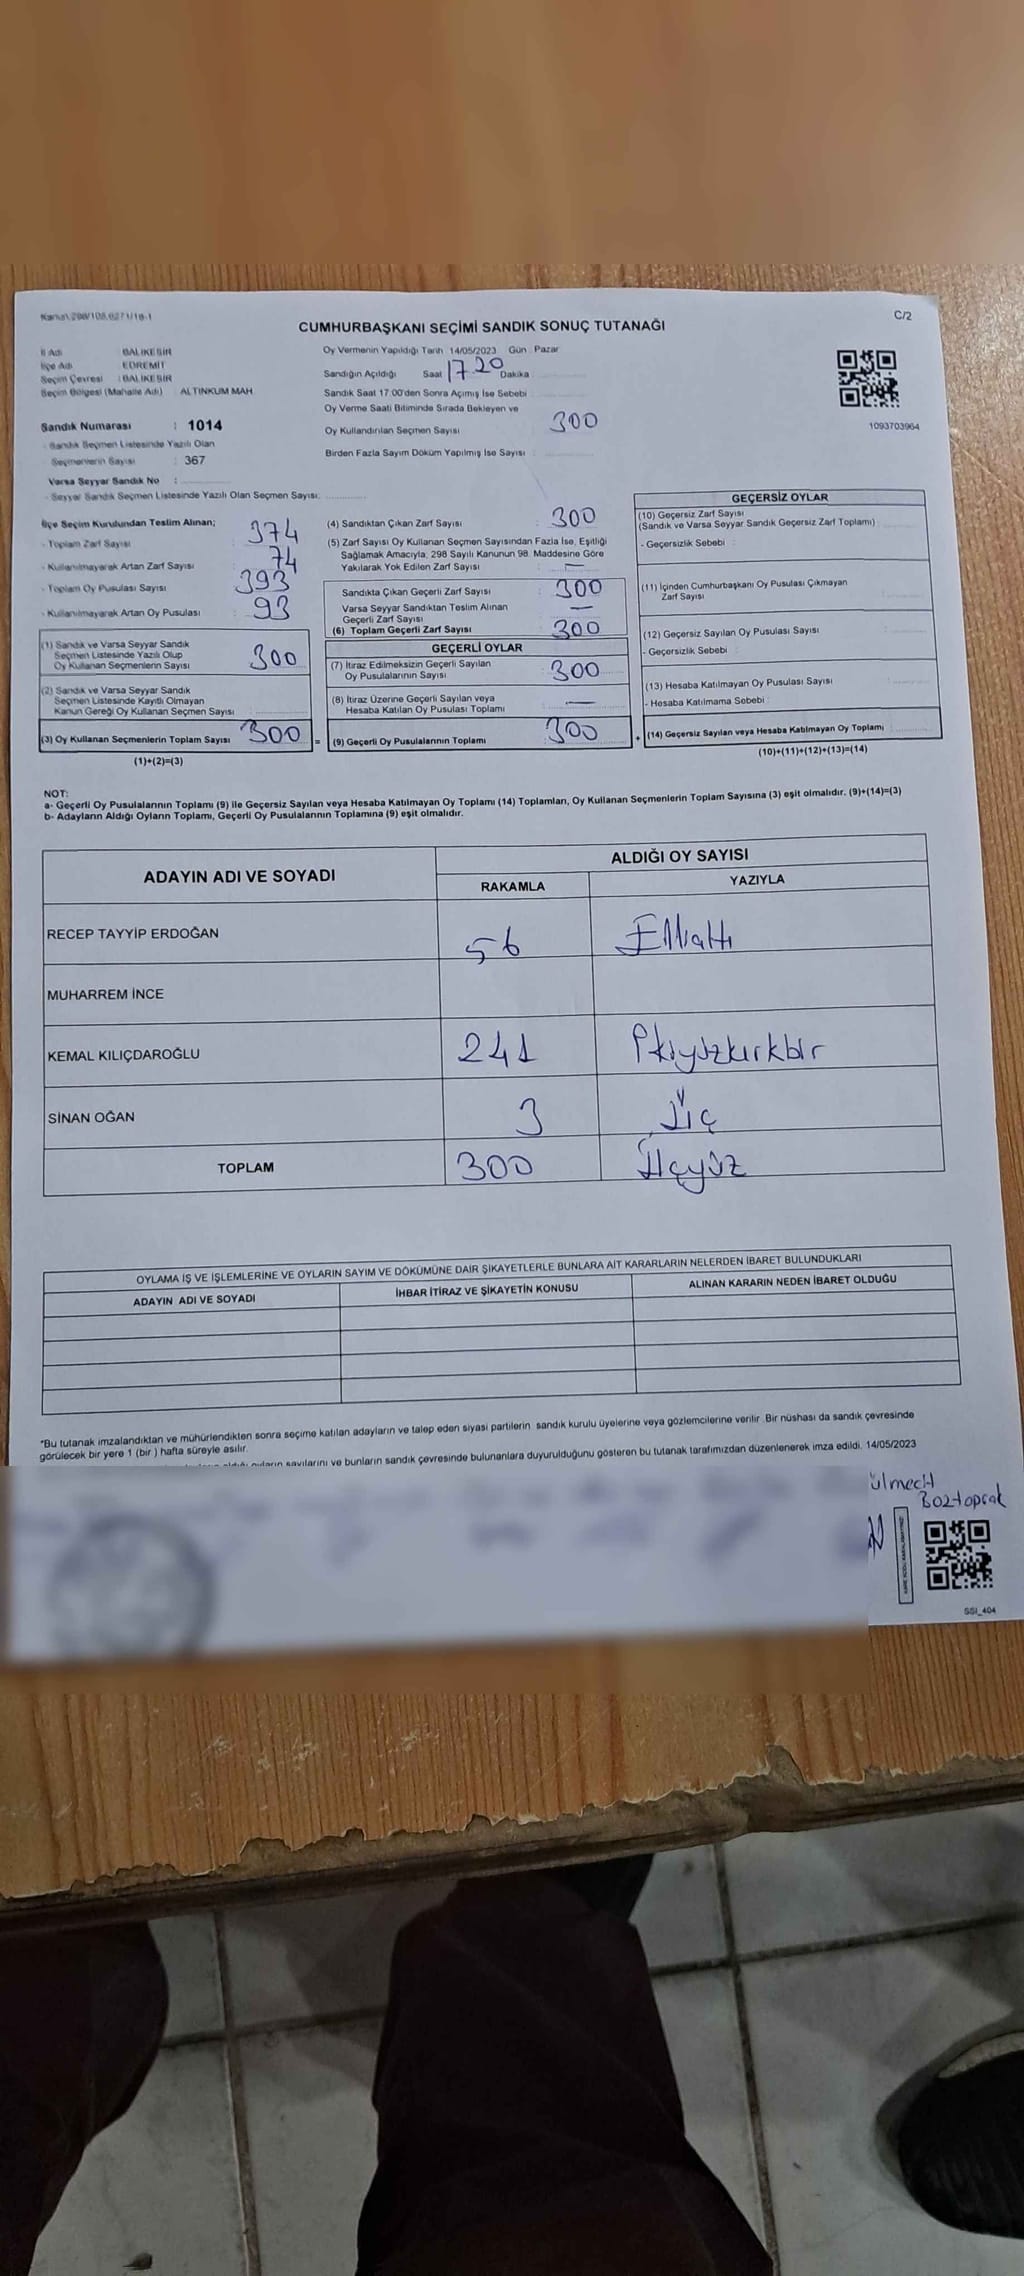 Kanun:298/105,6271/18-1
C/2
CUMHURBAŞKANI SEÇİMİ SANDIK SONUÇ TUTANAĞI
İl Adı : BALIKESİR
İlçe Adı : EDREMİT
Seçim Çevresi : BALIKESİR
Seçim Bölgesi (Mahalle Adı) ALTINKUM MAH
Sandık Numarası : 1014
- Sandık Seçmen Listesinde Yazılı Olan
Seçmenlerin Sayısı : 367
Varsa Seyyar Sandık No :
- Seyyar Sandık Seçmen Listesinde Yazılı Olan Seçmen Sayısı:
Oy Vermenin Yapıldığı Tarih 14/05/2023 Gün : Pazar
Sandığın Açıldığı Saat 17 20 Dakika
Sandık Saat 17.00'den Sonra Açımış İse Sebebi
Oy Verme Saati Bitiminde Sırada Bekleyen ve
Oy Kullandırılan Seçmen Sayısı : 300
Birden Fazla Sayım Döküm Yapılmış İse Sayısı :
1093703964
İlçe Seçim Kurulundan Teslim Alınan;
- Toplam Zarf Sayısı : 374
- Kullanılmayarak Artan Zarf Sayısı : 74
- Toplam Oy Pusulası Sayısı : 393
- Kullanılmayarak Artan Oy Pusulası : 93
(1) Sandık ve Varsa Seyyar Sandık
Seçmen Listesinde Yazılı Olup
Oy Kullanan Seçmenlerin Sayısı : 300
(2) Sandık ve Varsa Seyyar Sandık
Seçmen Listesinde Kayıtlı Olmayan
Kanun Gereği Oy Kullanan Seçmen Sayısı :
(3) Oy Kullanan Seçmenlerin Toplam Sayısı : 300 =
(1)+(2)=(3)
(4) Sandıktan Çıkan Zarf Sayısı : 300
(5) Zarf Sayısı Oy Kullanan Seçmen Sayısından Fazla İse, Eşitliği
Sağlamak Amacıyla, 298 Sayılı Kanunun 98. Maddesine Göre
Yakılarak Yok Edilen Zarf Sayısı : —
Sandıkta Çıkan Geçerli Zarf Sayısı : 300
Varsa Seyyar Sandıktan Teslim Alınan
Geçerli Zarf Sayısı : —
(6) Toplam Geçerli Zarf Sayısı : 300
GEÇERLİ OYLAR
(7) İtiraz Edilmeksizin Geçerli Sayılan
Oy Pusulalarının Sayısı : 300
(8) İtiraz Üzerine Geçerli Sayılan veya
Hesaba Katılan Oy Pusulası Toplamı : —
(9) Geçerli Oy Pusulalarının Toplamı : 300 +
GEÇERSİZ OYLAR
(10) Geçersiz Zarf Sayısı
(Sandık ve Varsa Seyyar Sandık Geçersiz Zarf Toplamı) :
- Geçersizlik Sebebi :
(11) İçinden Cumhurbaşkanı Oy Pusulası Çıkmayan
Zarf Sayısı :
(12) Geçersiz Sayılan Oy Pusulası Sayısı :
- Geçersizlik Sebebi :
(13) Hesaba Katılmayan Oy Pusulası Sayısı :
- Hesaba Katılmama Sebebi :
(14) Geçersiz Sayılan veya Hesaba Katılmayan Oy Toplamı :
(10)+(11)+(12)+(13)=(14)
NOT:
a- Geçerli Oy Pusulalarının Toplamı (9) ile Geçersiz Sayılan veya Hesaba Katılmayan Oy Toplamı (14) Toplamları, Oy Kullanan Seçmenlerin Toplam Sayısına (3) eşit olmalıdır. (9)+(14)=(3)
b- Adayların Aldığı Oyların Toplamı, Geçerli Oy Pusulalarının Toplamına (9) eşit olmalıdır.
ADAYIN ADI VE SOYADI
ALDIĞI OY SAYISI
RAKAMLA YAZIYLA
RECEP TAYYİP ERDOĞAN 56 Ellialtı
MUHARREM İNCE
KEMAL KILIÇDAROĞLU 241 İkiyüzkırkbir
SİNAN OĞAN 3 Üç
TOPLAM 300 Üçyüz
OYLAMA İŞ VE İŞLEMLERİNE VE OYLARIN SAYIM VE DÖKÜMÜNE DAİR ŞİKAYETLERLE BUNLARA AİT KARARLARIN NELERDEN İBARET BULUNDUKLARI
ADAYIN ADI VE SOYADI İHBAR İTİRAZ VE ŞİKAYETİN KONUSU ALINAN KARARIN NEDEN İBARET OLDUĞU
*Bu tutanak imzalandıktan ve mühürlendikten sonra seçime katılan adayların ve talep eden siyasi partilerin sandık kurulu üyelerine veya gözlemcilerine verilir. Bir nüshası da sandık çevresinde
görülecek bir yere 1 (bir ) hafta süreyle asılır.
oyların sayılarını ve bunların sandık çevresinde bulunanlara duyurulduğunu gösteren bu tutanak tarafımızdan düzenlenerek imza edildi. 14/05/2023
Boztoprak
SSI_404